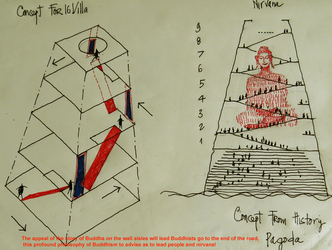 Concept For 16 Villa
Nirvana
9
8
7
6
5
4
3
2
1
Concept From History
Pagoda
The appeal of the story of Buddha on the wall aisles will lead Buddhists go to the end of the road,
this profound philosophy of Buddhism to advise as to lead people and nirvana!